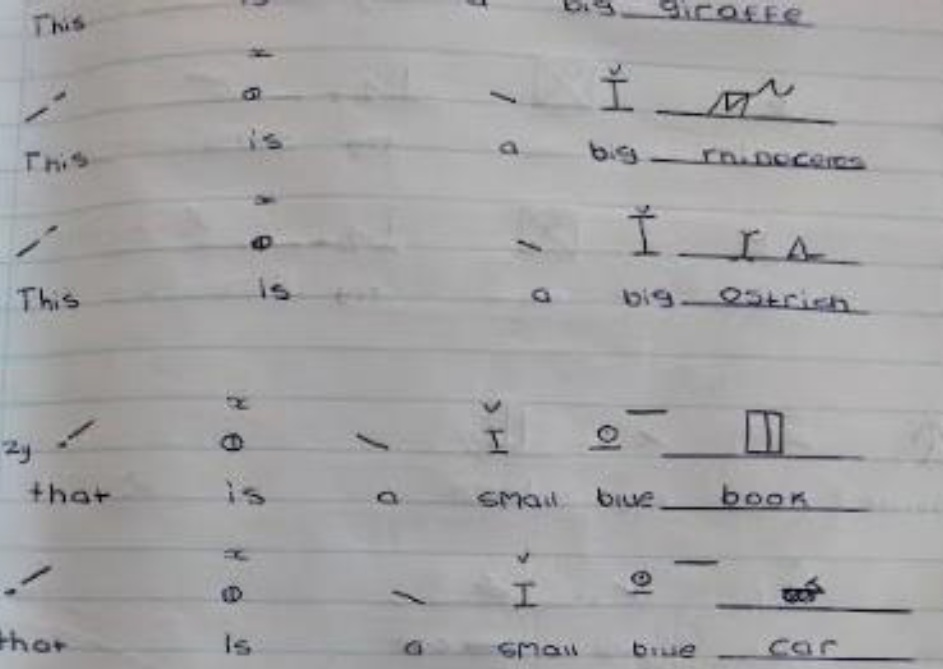 This is a big giraffe
This is a big rhinoceros
This is a big Ostrich
2y
that is a small blue book
that is a small blue car